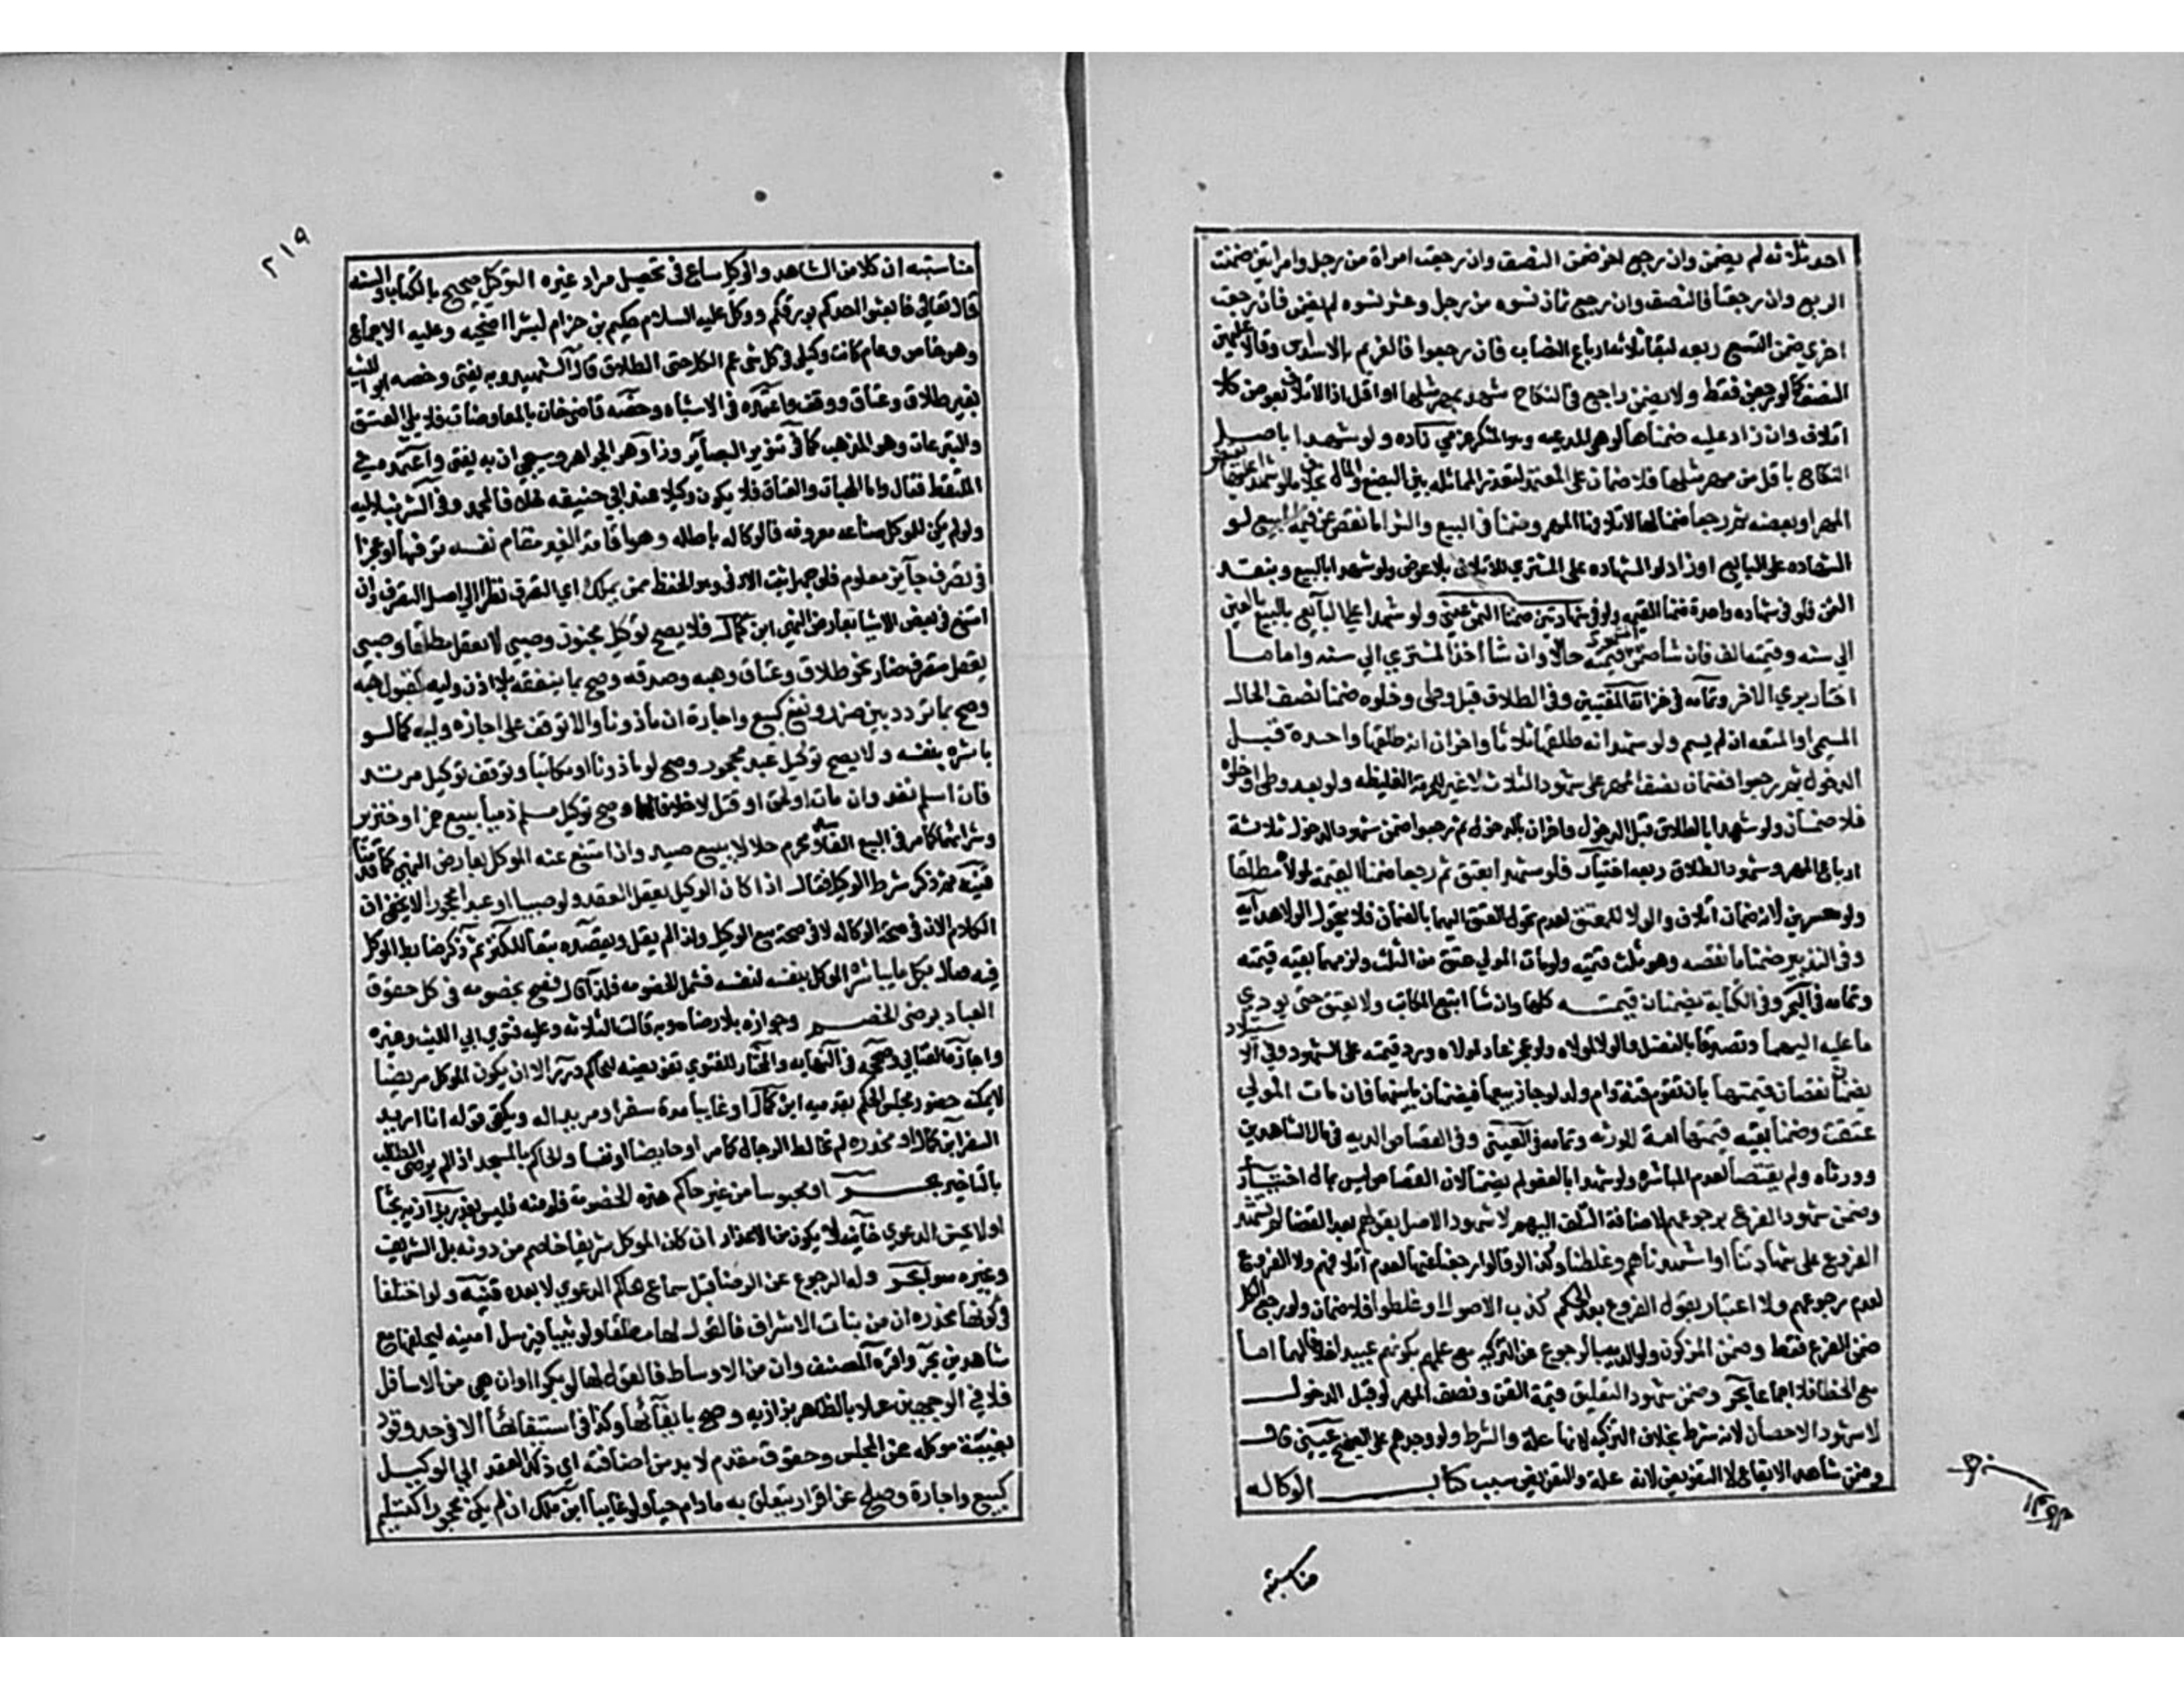 احد ثلاثه لم يضمن وان رجع اخر ضمن النصف وان رجعت امراة من رجل وامراتين ضمنت
الربع وان رجعتا فالنصف وان رجع ثمان نسوه من رجل وعشر نسوه لم يضمن فان رجعت
اخرى ضمن التسع ربعه لبقا ثلاثه ارباع النصاب فان رجعوا فالغرم بالاسداس وقالا عليهن
النصف كما لو رجعن فقط ولا يضمن راجع في النكاح شهد بمهر مثلها او اقل اذ الاتلاف بعوض كلا
اتلاف وان زاد عليه ضمناها لو هي المدعيه وهو المنكر عزمي زاده ولو شهدا باصل
النكاح باقل من مهر مثلها فلا ضمان على المعتمد لتعذر المماثله بين البضع والمال بخلاف ما لو شهدا عليها بقبض
المهر او بعضه ثم رجعا ضمنا لها لاتلافهما المهر وضمنا في البيع والشرا ما نقص عن قيمه المبيع لو
الشهاده على البايع او زاد لو الشهاده على المشتري للاتلاف بلا عوض ولو شهدا بالبيع وبنقد
الثمن فلو في شهاده واحدة ضمنا القيمه ولو في شهادتين ضمنا الثمن عيني ولو شهدا على البايع بالبيع بالفين
الي سنه وقيمته الف فان شا ضمن الشهود قيمته حالا وان شا اخذ المشتري الي سنه واياما
اختار بري الاخر وتمامه في خزانة المفتيين وفي الطلاق قبل وطى وخلوه ضمنا نصف المال
المسمى او المتعه ان لم يسم ولو شهدا انه طلقها ثلاثا واخران انه طلقها واحدة قبل
الدخول ثم رجعوا فضمان نصف المهر على شهود الثلاث لا غير للحرمة الغليظه ولو بعد وطى او خلوه
فلا ضمان ولو شهدا بالطلاق قبل الدخول واخران بالدخول ثم رجعوا ضمن شهود الدخول ثلاثة
ارباع المهر وشهود الطلاق ربعه اختيار فلو شهدا بعتق ثم رجعا ضمنا القيمة لمولاه مطلقا
ولو معسرين لانه ضمان اتلاف والولا للمعتق لعدم تحول العتق اليهما بالضمان فلا يتحول الولا هدايه
وفي التدبير ضمنا ما نقصه وهو ثلث قيمته ولو مات المولى عتق من الثلث ولزمهما بقيه قيمته
وتمامه في البحر وفي الكتابة يضمنان قيمته كلها وان شا اتبع المكاتب ولا يعتق حتى يودي
ما عليه اليهما وتصدقا بالفضل والولا لمولاه ولو عجز عاد لمولاه ورد قيمته على الشهود وفي الاستيلاد
يضمنان نقصان قيمتها بان تقوم قنة وام ولد لو جاز بيعها فيضمنان ما بينهما فان مات المولى
عتقت وضمنا بقيه قيمتها امة للورثه وتمامه في العيني وفي القصاص الديه في مال الشاهدين
وورثاه ولم يقتصا لعدم المباشره ولو شهدا بالعفو لم يضمنا لان القصاص ليس بمال اختيار
وضمن شهود الفرع برجوعهم لاضافة التلف اليهم لا شهود الاصل بقولهم بعد القضا لم نشهد
الفروع على شهادتنا او اشهدناهم وغلطنا وكذا لو قالوا رجعنا عنها لعدم اتلافهم ولا الفروع
لعدم رجوعهم ولا اعتبار بقول الفروع بعد الحكم كذب الاصول او غلطوا فلا ضمان ولو رجع الكل
ضمن الفرع فقط وضمن المزكون ولو الديه بالرجوع عن التزكيه مع علمهم بكونهم عبيدا خلافا لهما اما
مع الخطا فلا اجماعا بحر وضمن شهود التعليق قيمة القن ونصف المهر لو قبل الدخول
لا شهود الاحصان لانه شرط بخلاف التزكيه لانها علة والشرط ولو وحدهم على الصحيح عيني قال
وضمن شاهدا الايقاع لا التفويض لانه علة والتفويض سبب كتاب الوكاله
مناسبته
٢١٩
مناسبته ان كلا من الشاهد والوكيل ساع في تحصيل مراد غيره التوكيل صحيح بالكتاب والسنه
قال تعالى فابعثوا احدكم بورقكم ووكل عليه السلام حكيم بن حزام لشرا اضحيه وعليه الاجماع
وهو خاص وعام كانت وكيلي في كل شي عم الكل حتى الطلاق قال الشهيد وبه يفتى وخصه ابو الليث
بغير طلاق وعتاق ووقف واعتمده في الاشباه وخصه قاضي خان بالمعاوضات فلا يلي العتق
والتبرعات وهو المذهب كما في تنوير البصاير وزواهر الجواهر وسيجي ان به يفتى واعتمده في
الملتقط فقال واما الهبات والعتاق فلا يكون وكيلا عند ابي حنيفه خلافا لمحمد وفي الشرنبلاليه
ولو لم يكن للموكل صناعه معروفه فالوكاله باطله وهو اقامة الغير مقام نفسه ترفها او عجزا
في تصرف جايز معلوم فلو جهل ثبت الادنى وهو الحفظ ممن يملكه اي التصرف نظرا الي اصل التصرف وان
امتنع في بعض الاشيا بعارض النهي ابن كمال فلا يصح توكيل مجنون وصبي لا يعقل مطلقا وصبي
يعقل بتصرف ضار نحو طلاق وعتاق وهبه وصدقه وصح بما ينفعه بلا اذن وليه كقبول هبه
وصح بما تردد بين ضرر ونفع كبيع واجارة ان ماذونا والا توقف على اجازه وليه كما لو
باشره بنفسه ولا يصح توكيل عبد محجور وصح لو ماذونا او مكاتبا وتوقف توكيل مرتد
فان اسلم نفذ وان مات او لحق او قتل لا خلافا لهما وصح توكيل مسلم ذميا ببيع خمر او خنزير
وشرائهما كما مر في البيع الفاسد ومحرم حلالا ببيع صيد وان امتنع عنه الموكل بعارض النهي كما قدمنا
فتنبه ثم ذكر شرط الوكيل فقال اذا كان الوكيل يعقل العقد ولو صبيا او عبدا محجورا لا يخفى ان
الكلام الان في صحة الوكاله لا في صحة بيع الوكيل ولذا لم يقل ويقصده تبعا للكنز ثم ذكر ضابط الموكل
فيه فقال بكل ما يباشره الموكل بنفسه لنفسه فشمل الخصومه فلذا قال فصح بخصومه في كل حقوق
العباد برضى الخصم وجوازه بلا رضاه وبه قالت الثلاثه وعليه فتوى ابي الليث وغيره
واختاره العتابي وصححه في النهايه والمختار للفتوي تفويضه للحاكم درر الا ان يكون الموكل مريضا
لا يمكنه حضور مجلس الحكم بقدميه ابن كمال او غايبا مدة سفر او مريدا له ويكفى قوله انا اريد
السفر ابن كمال او مخدره لم تخالط الرجال كما مر او حايضا او نفسا والحاكم بالمسجد اذا لم يرضى الطالب
بالتاخير بحر او محبوسا من غير حاكم هذه الخصومة فلو منه فليس بعذر بزازيه بحثا
او لا يحسن الدعوي خانيه لا يكون من الاعذار ان كان الموكل شريفا خاصم من دونه بل الشريف
وغيره سوا بحر وله الرجوع عن الرضا قبل سماع الحاكم الدعوي لا بعده قنيه ولو اختلفا
في كونها مخدره ان من بنات الاشراف فالقول لها مطلقا ولو ثيبا فيرسل امينه ليحلفها مع
شاهدين بحر واقره المصنف وان من الاوساط فالقول لها لو بكرا وان هي من الاسافل
فلا في الوجهين عملا بالظاهر بزازيه وصح بايفائها وكذا في استيفائها الا في حد وقود
بغيبة موكله عن المجلس وحقوق عقد لا بد من اضافته اي ذلك العقد الي الوكيل
كبيع واجارة وصلح عن اقرار يتعلق به ما دام حيا ولو غايبا ابن ملك ان لم يكن محجورا كتسليم